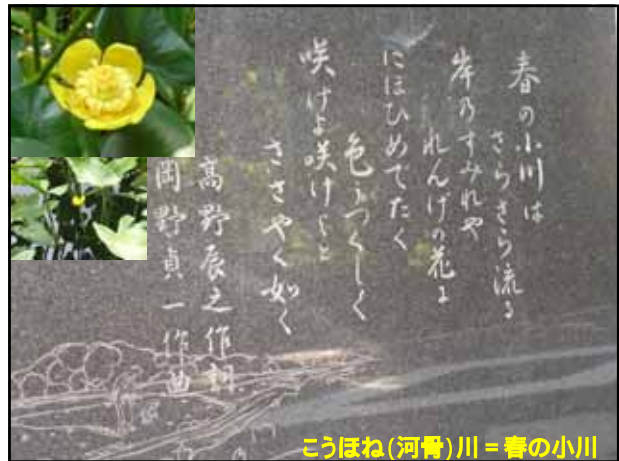 春の小川は
さらさら流る
岸乃すみれや
れんげの花に
にほひめでたく
色うつくしく
咲けよ咲けよと
ささやく如く
髙野辰之作詞
岡野貞一作曲
こうほね(河骨)川=春の小川